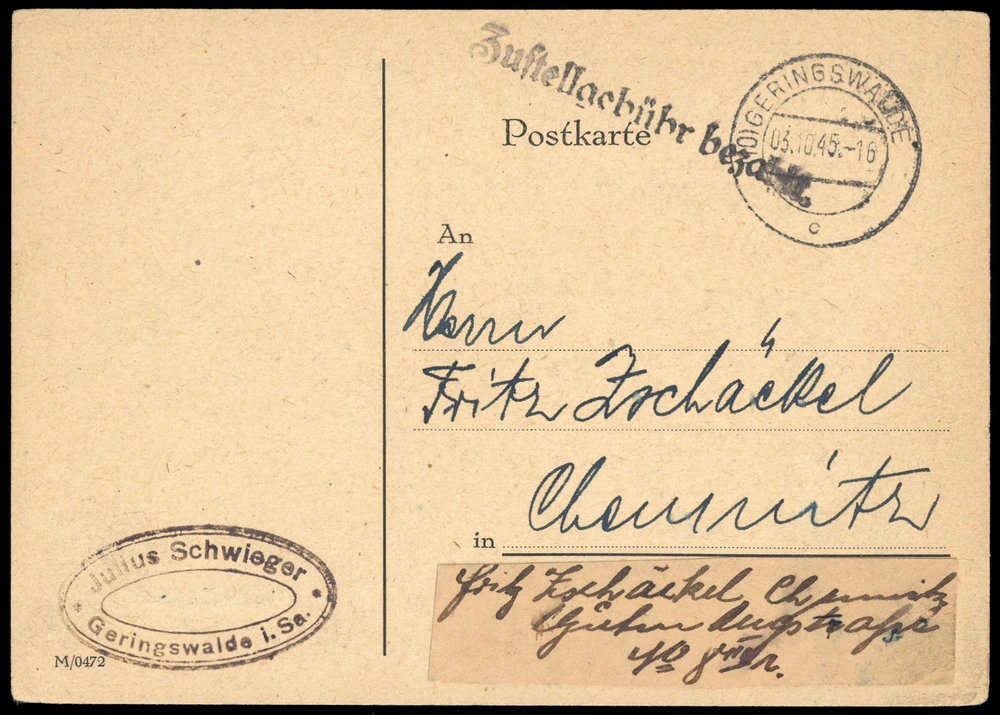 Zustellgebühr bezahlt.
GERINGSWALDE
03.10.45.-16
c
Postkarte
An
Herrn
Fritz Zschäckel
Chemnitz
in
Fritz Zschäckel Chemnitz
Julius Schwieger
Geringswalde i. Sa.
M/0472